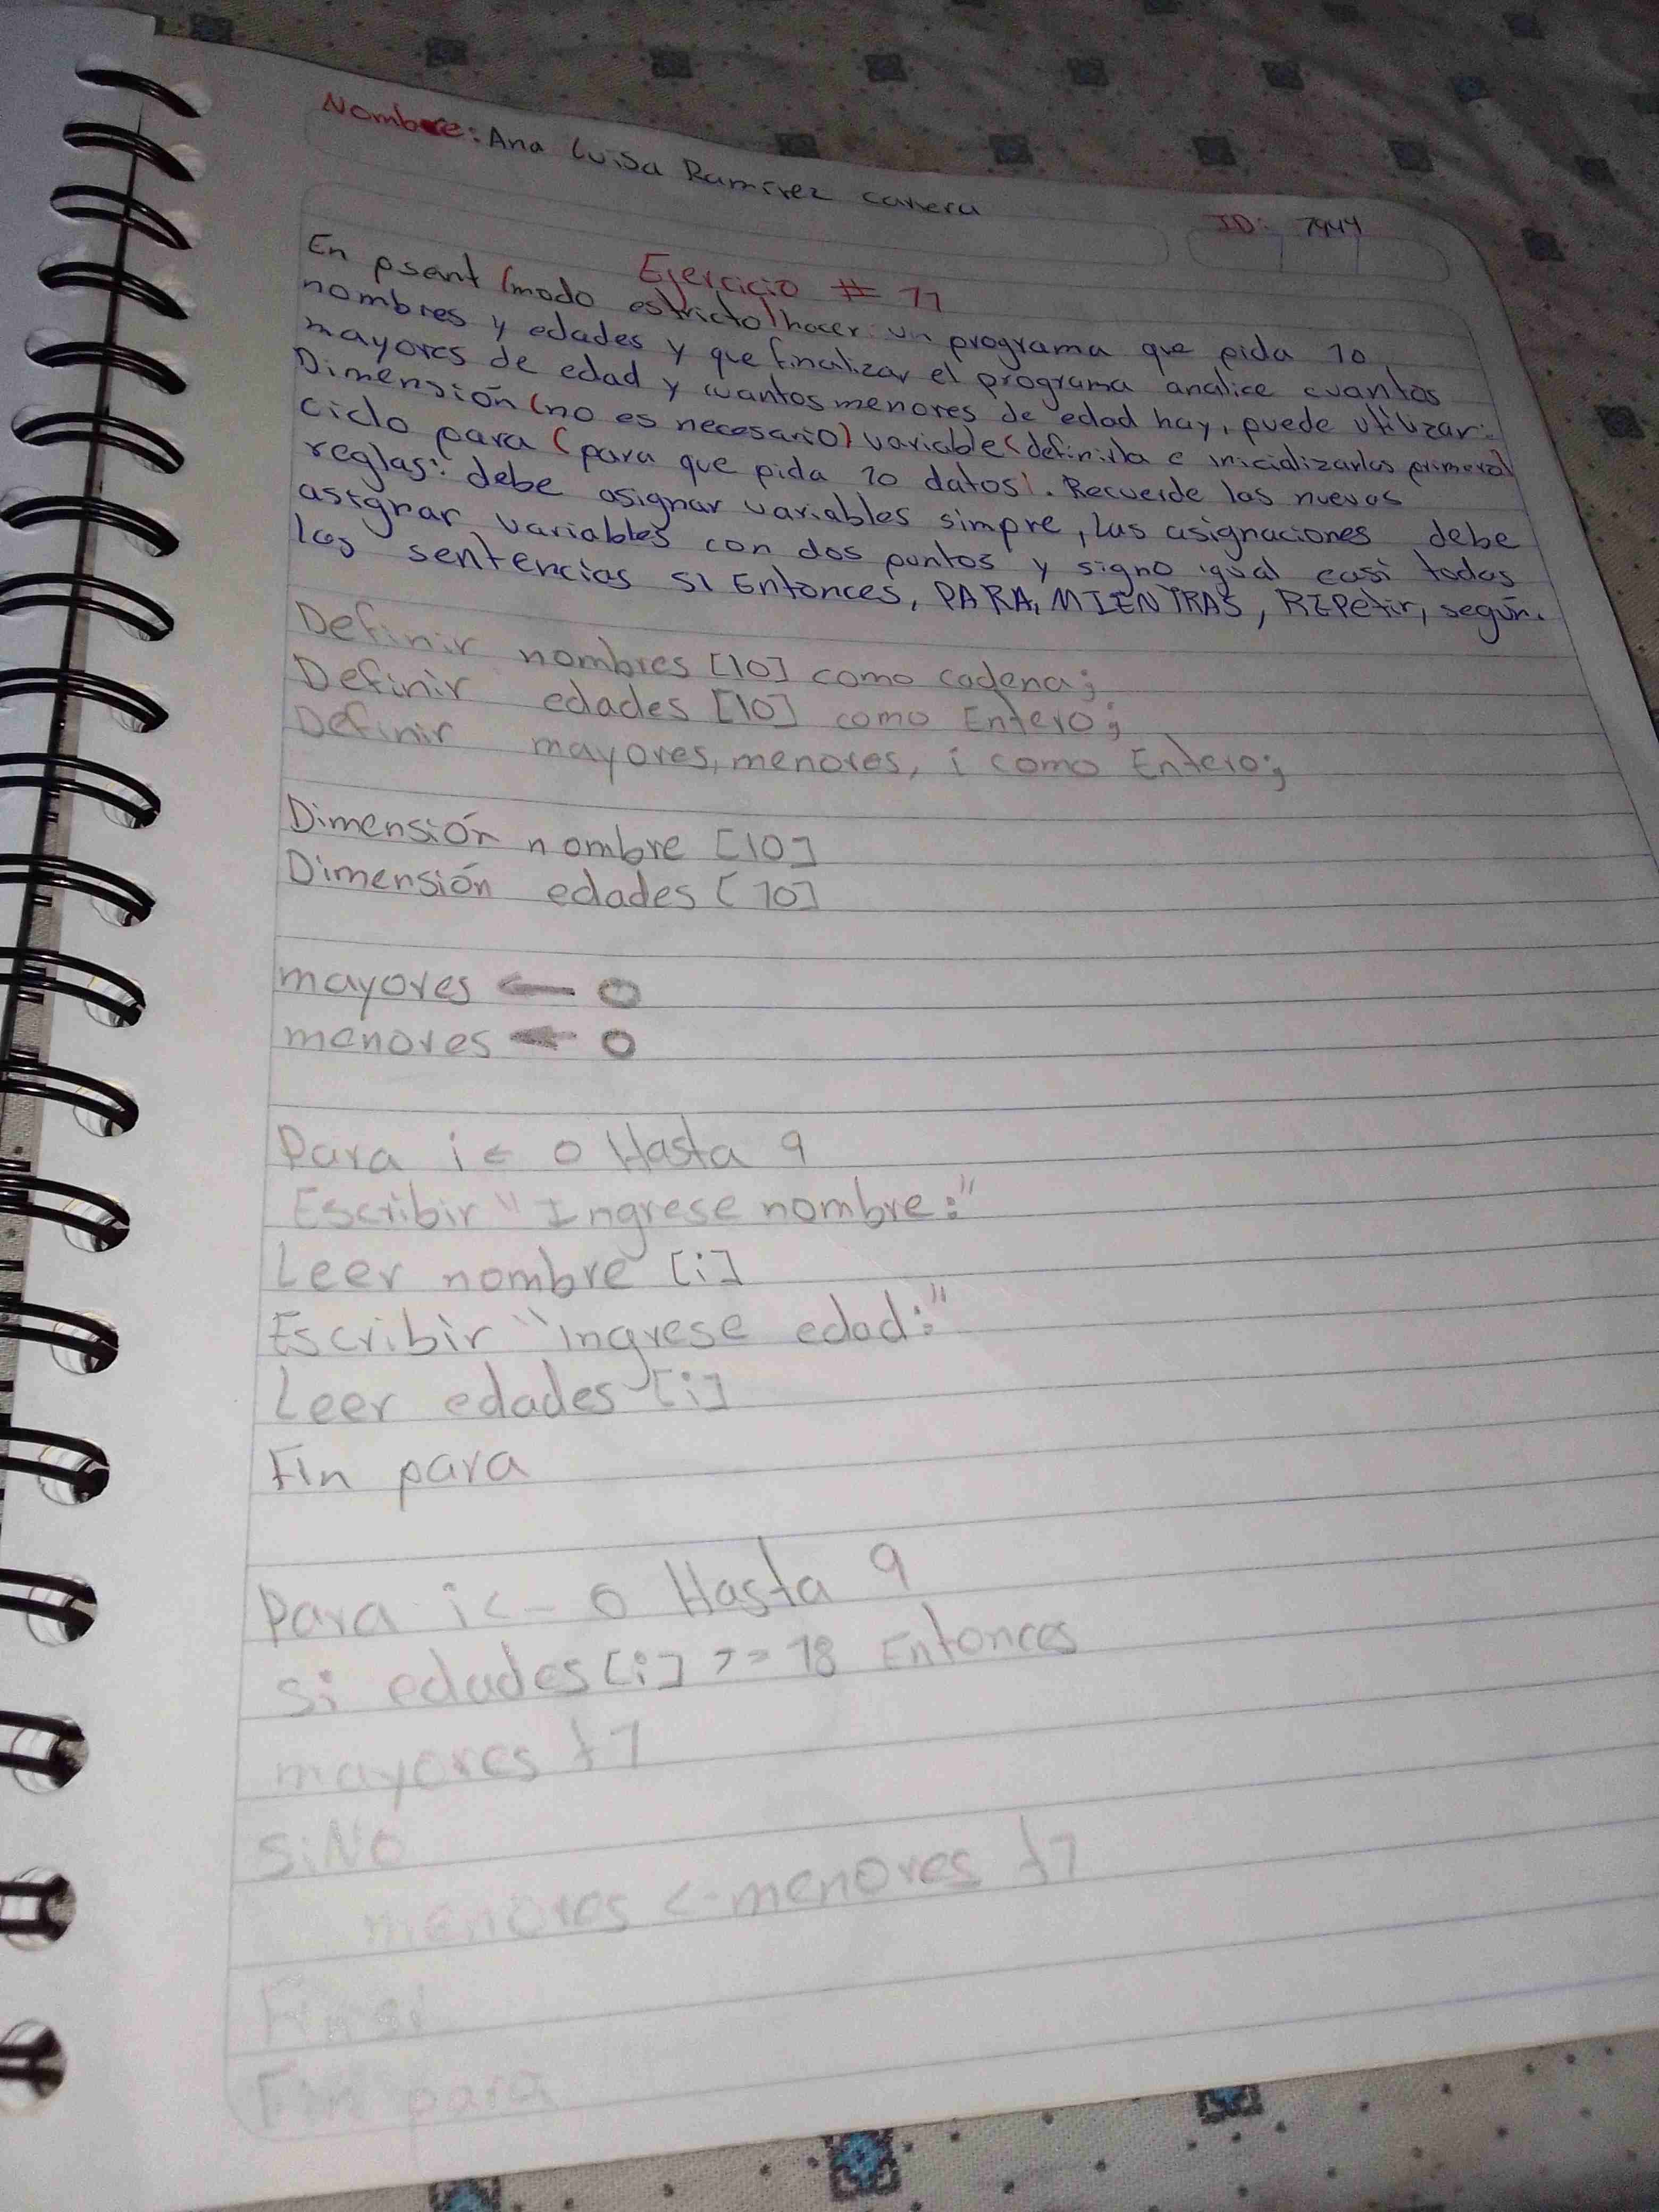 Nombre: Ana Luisa Ramírez carrera
ID: 7444
Ejercicio # 11
En pseint (modo estricto) hacer un programa que pida 10
nombres y edades y que finalizar el programa analice cuantos
mayores de edad y cuantos menores de edad hay, puede utilizar:
Dimensión (no es necesario) variable (definirla e inicializarlas primero)
ciclo para (para que pida 10 datos). Recuerde las nuevas
reglas: debe asignar variables simpre, las asignaciones debe
asignar variables con dos puntos y signo igual casi todas
las sentencias SI Entonces, PARA, MIENTRAS, REPetir, según.
Definir nombres [10] como cadena;
Definir edades [10] como Entero;
Definir mayores, menores, i como Entero;
Dimensión nombre [10]
Dimensión edades [10]
mayores ← 0
menores ← 0
Para i ← 0 Hasta 9
Escribir "Ingrese nombre:"
Leer nombre [i]
Escribir "ingrese edad:"
Leer edades [i]
Fin para
Para i <- 0 Hasta 9
Si edades [i] >= 18 Entonces
mayores +1
SiNo
menores <- menores +1
Finsi
Fin para